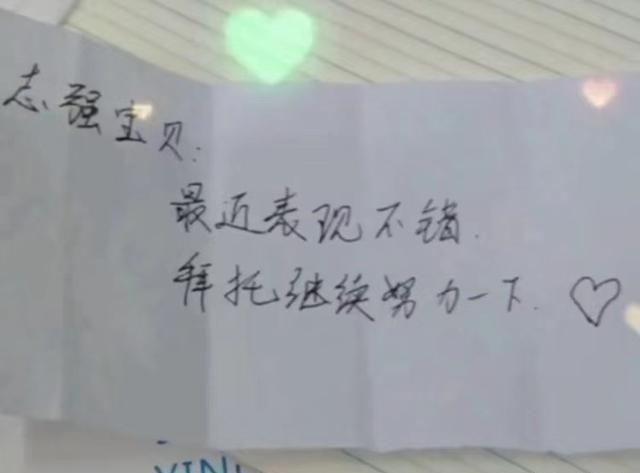 志强宝贝:
最近表现不错.
拜托继续努力一下.